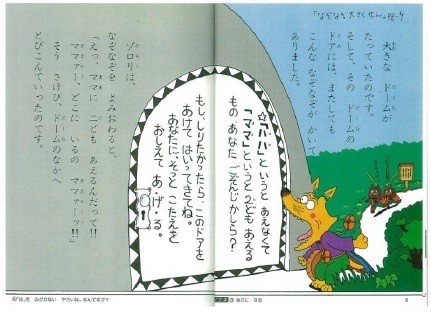 「なぞなぞ大さくせん」
大きな ドームが
たっていたのです。
そして、その ドームの
ドアには、またしても
こんな なぞなぞが かいて
ありました。
☆「パパ」と いうと あえなくて
「ママ」と いうと 2ども あえる
もの あなた ごぞんじかしら?
もし、しりたかったら、この ドアを
あけて はいってきてね。
あなたに、そっと こたえを
おしえて あ・げ・る。
ゾロリは、
なぞなぞを よみおわると、
「えっ、ママに 二ども あえるんだって!!
ママァー、どこに いるの ママァーッ!!」
そう さけび、ドームのなかへ
とびこんでいったのです。